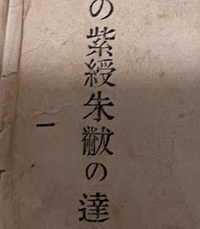 の紫綬朱黻の達
一